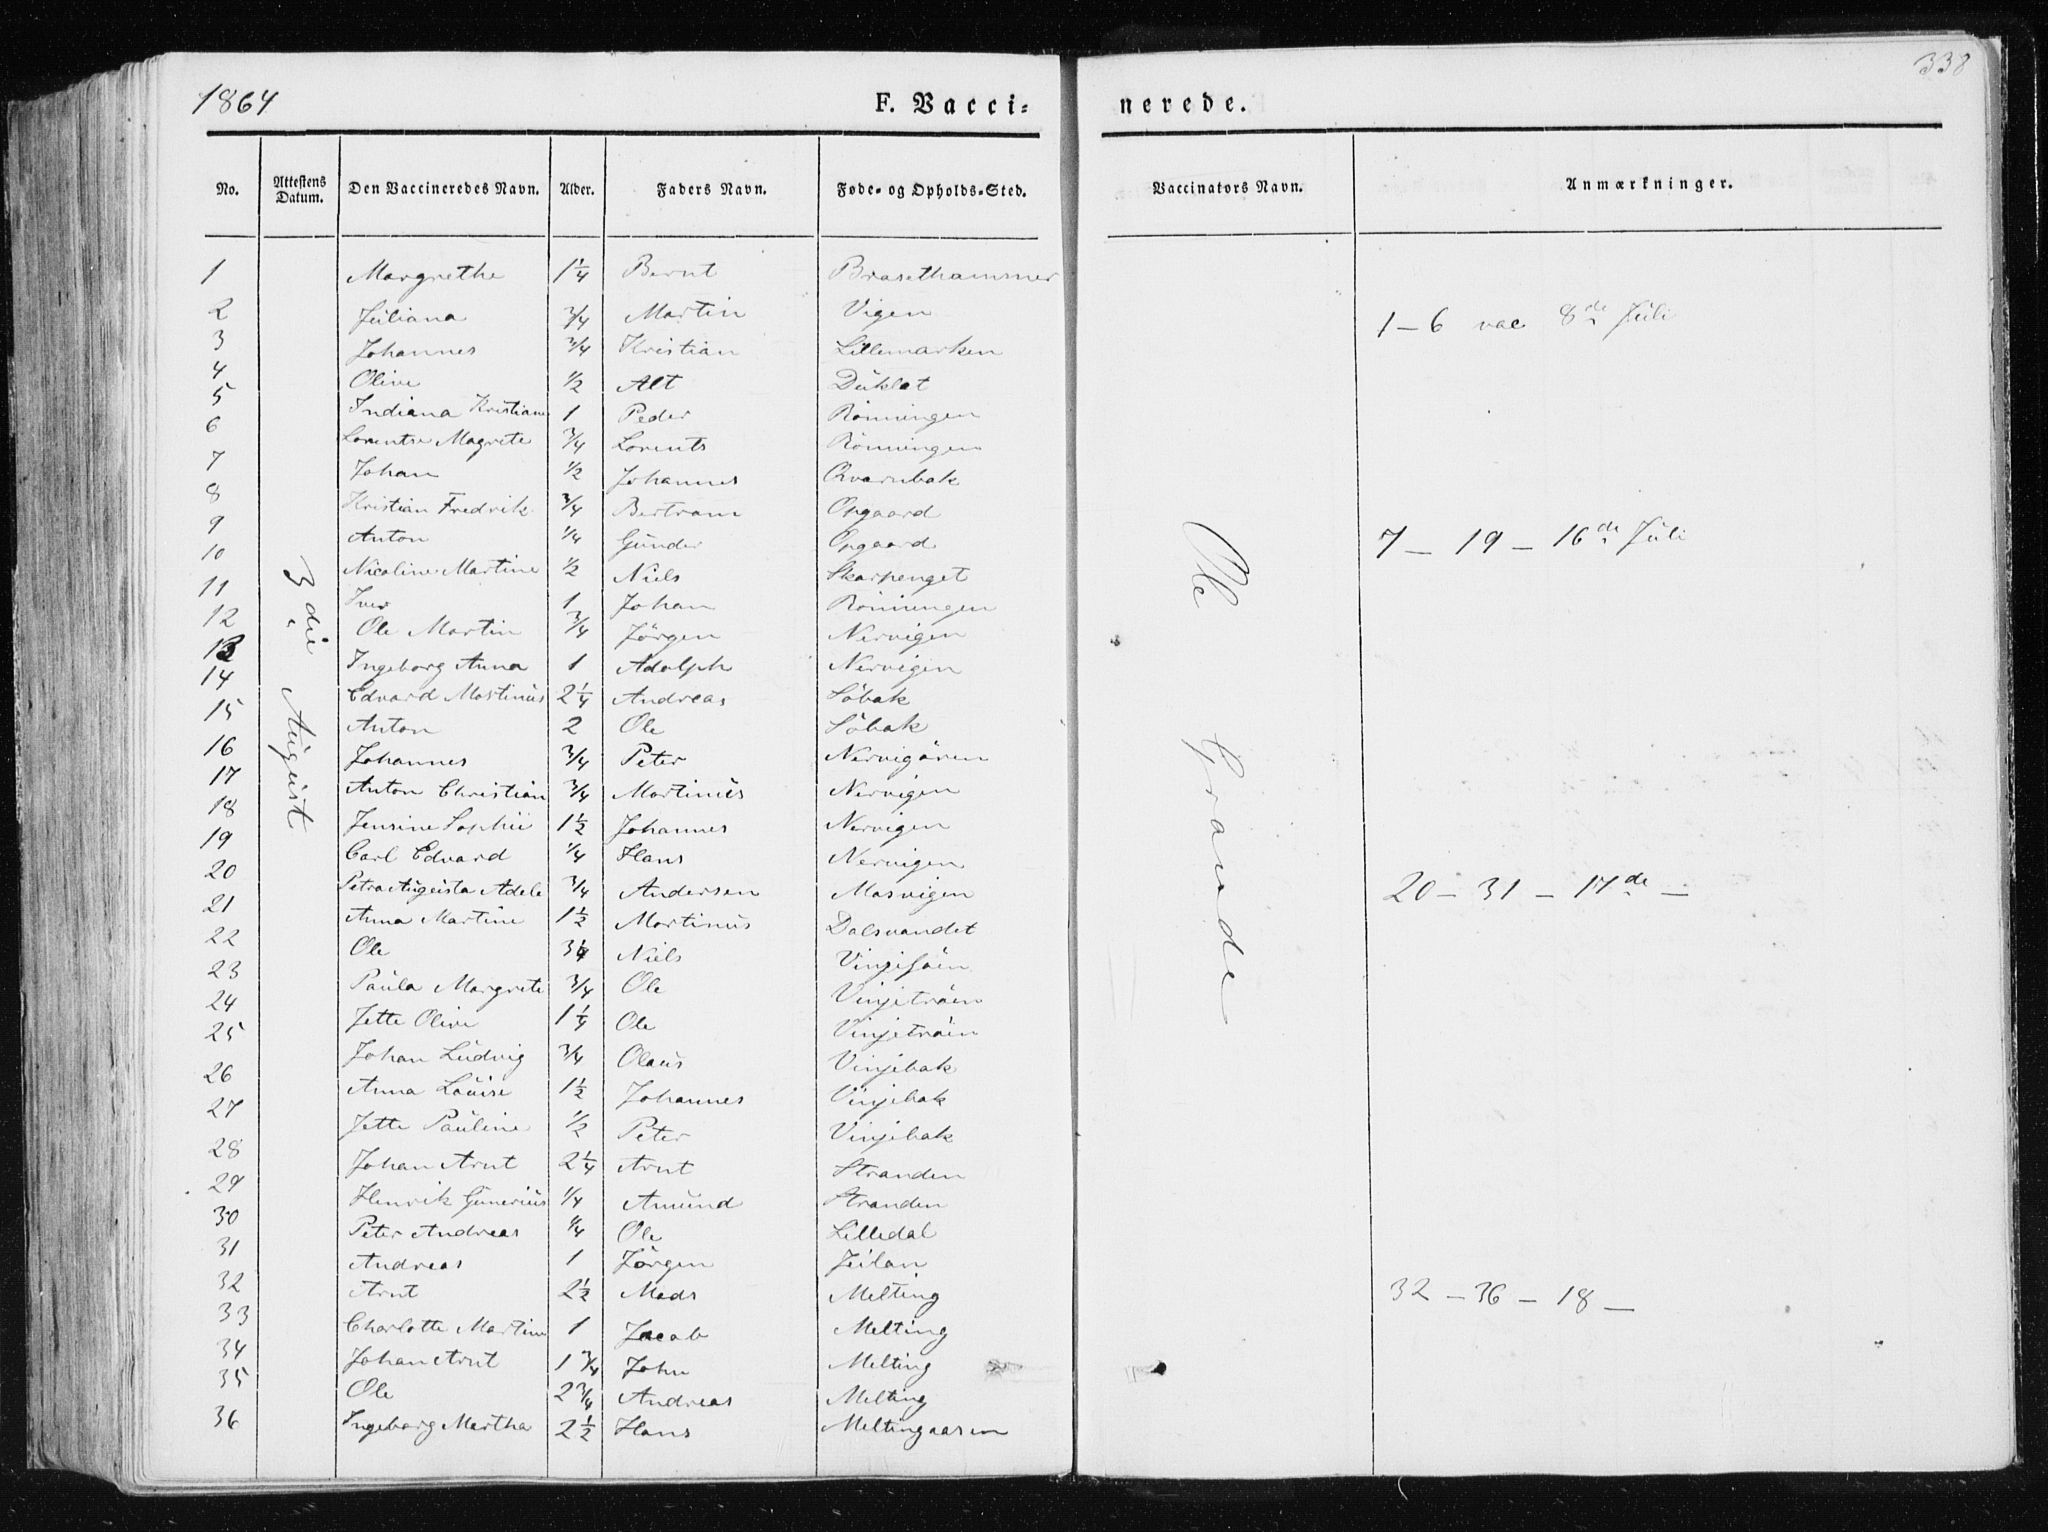 1864 F. Vacci= nerede. 338
No. Attestens Datum. Den Vaccineredes Navn. Alder. Faders Navn. Føde- og Opholds-Sted. Vaccinators Navn. Anmærkninger.
3die August
Ole Grande
1 Margrethe 1 1/4 Bernt Brasethammer
2 Juliana 3/4 Martin Vigen 1-6 vac 8de Juli
3 Johannes 3/4 Kristian Lillemarken
4 Olive 1/2 Alt
5 Indiana Kristiane 1 Peder Rönningen
6 Lorentse Magrete 3/4 Lorents Rönningen
7 Johan 1/2 Johannes Qvarnbak
8 Kristian Fredrik 3/4 Bertram Opgaard
9 Anton 1/4 Gunder Opgaard 7 - 19 - 16de Juli
10 Nicoline Martine 1/2 Niels Skarpenget
11 Iver 1 Johan Rönningen
12 Ole Martin 3/4 Jörgen Nervigen
13 Ingeborg Anna 1 Adolph Nervigen
14 Edvard Mortinus 2 1/4 Andreas Söbak
15 Anton 2 Ole Söbak
16 Johannes 3/4 Peter Nervigören
17 Anton Christian 3/4 Martinus Nervigen
18 Jensine Sophii 1 1/2 Johannes Nervigen
19 Carl Edvard 1/4 Hans Nervigen
20 Petra Augusta Adele 3/4 Andersen Mosvigen 20 - 31 - 17de -
21 Anna Martine 1 1/2 Mortinus Dalsvandet
22 Ole 3/4 Niels
23 Paula Margrete 3/4 Ole Vinjetröen
24 Jette Olive 1 1/4 Ole Vinjetröen
25 Johan Ludvig 3/4 Olaus Vinjebak
26 Anna Louise 1 1/2 Johannes Vinjebak
27 Jette Pauline 1/2 Peter Vinjebak
28 Johan Arnt 2 1/4 Arnt Stranden
29 Henrik Gunerius 1/4 Amund Stranden
30 Peter Andreas 1/4 Ole Lilledal
31 Andreas 1 Jörgen
32 Arnt 2 1/2 Mads Melting 32 - 36 - 18 -
33 Charlotte Martine 1 Jacob Melting
34 Johan Arnt 1 3/4 John Melting
35 Ole 2 3/4 Andreas Melting
36 Ingeborg Martha 2 1/2 Hans Meltingaasen